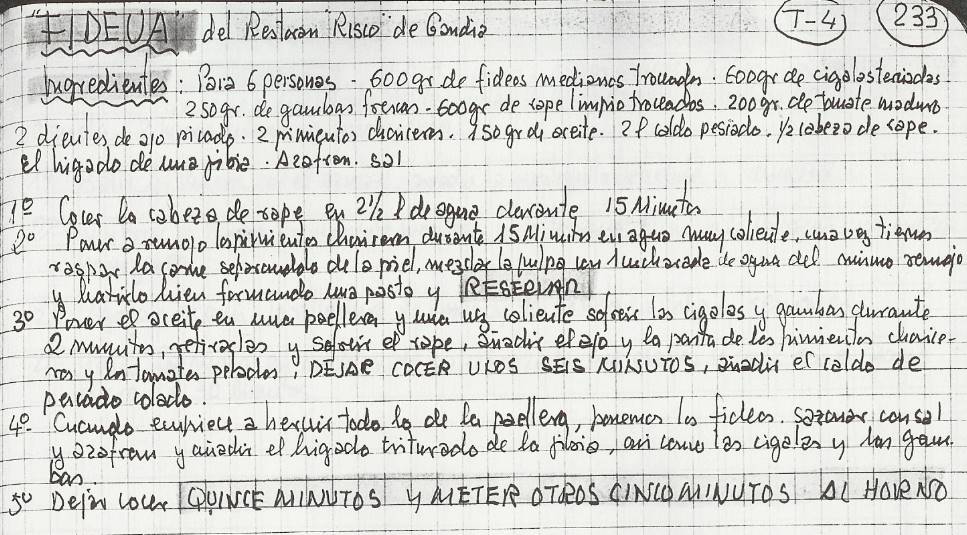 "FIDEUA" del Restoran "RISCO" de Gandia T-4 233
Ingredientes: Para 6 personas - 600gr de fideos medianos troceados. 600gr de cigalas terciadas
250gr. de gambas frescas - 600gr de rape limpio troceados. 200gr. de tomate maduro
2 dientes de ajo picado. 2 pimientos choriceros. 150gr de aceite. 2 l caldo pescado. 1/2 cabeza de rape.
el higado de una jibia. Azafran. sal
1º Cocer la cabeza de rape en 2 1/2 l de agua durante 15 Minutos
2º Poner a remojo los pimientos choriceros durante 15 Minutos en agua muy caliente, una vez tiernos
raspar la carne separandola de la piel, mezclar la pulpa con 1 cucharada de agua del mismo remojo
y batirlo bien formando una pasta y RESERVAR
3º Poner el aceite en una paellera y una vez caliente sofreir las cigalas y gambas durante
2 minutos, retirarlas y sofreir el rape, añadir el ajo y la pasta de los pimientos chorice-
ros y los tomates pelados, DEJAR COCER UNOS SEIS MINUTOS, añadir el caldo de
pescado colado.
4º Cuando empiece a hervir todo lo de la paellera, ponemos los fideos. sazonar con sal
y azafran y añadir el higado triturado de la jibia, asi como las cigalas y las gam-
bas.
5º Dejar cocer QUINCE MINUTOS Y METER OTROS CINCO MINUTOS AL HORNO